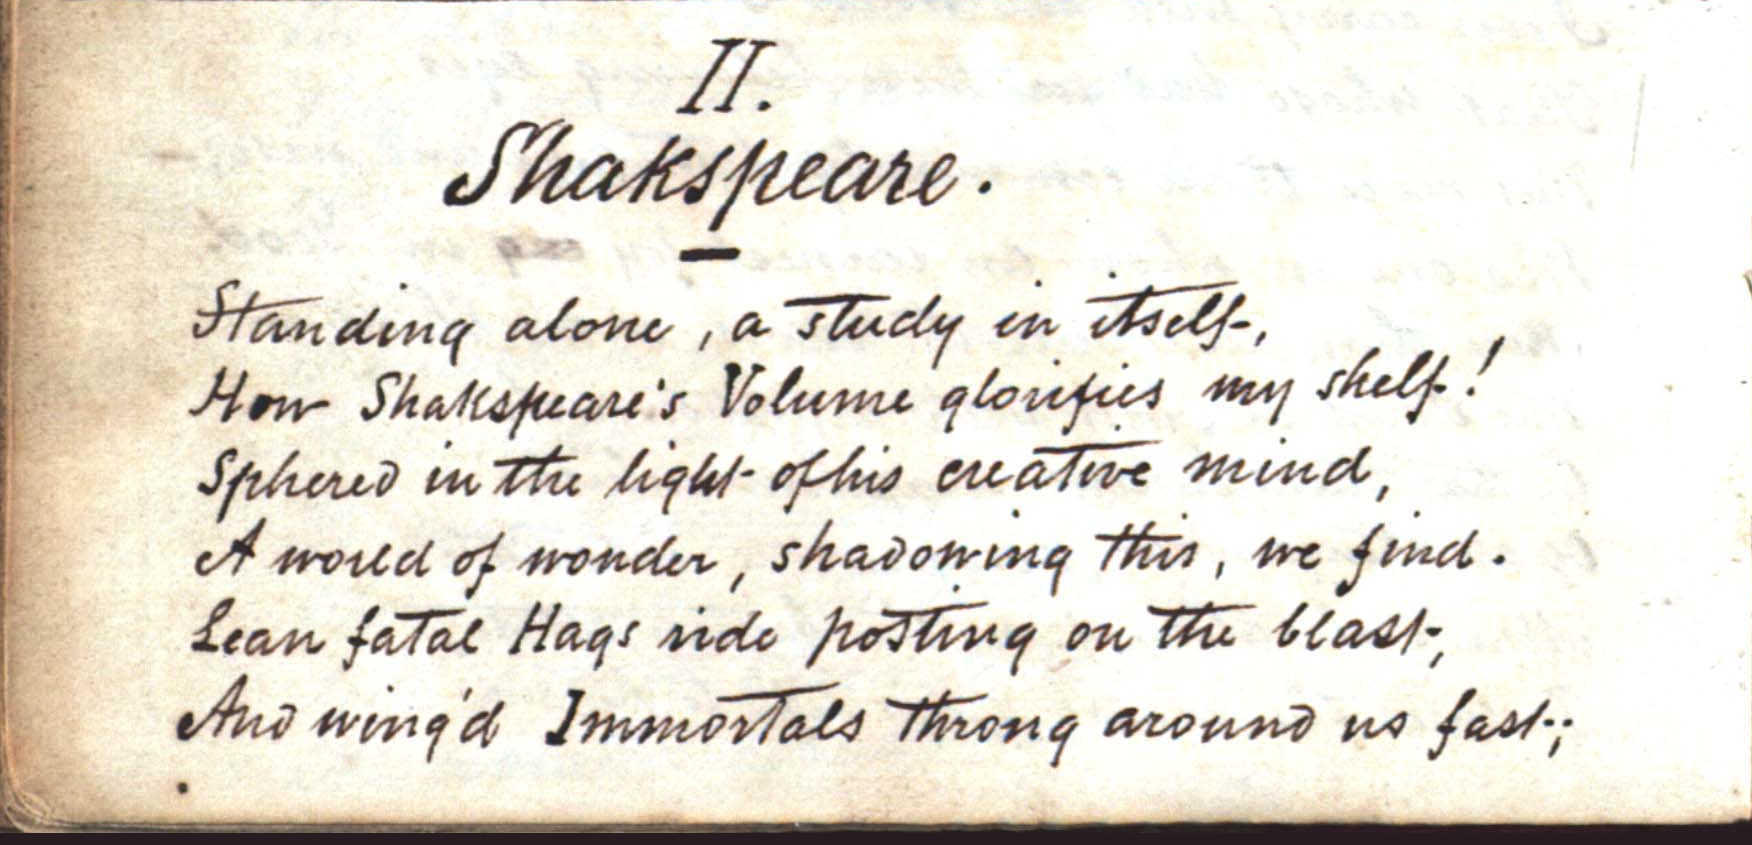 II.
Shakspeare.
Standing alone, a study in itself,
How Shakspeare's Volume glorifies my shelf!
Sphered in the light of his creative mind,
A world of wonder, shadowing this, we find.
Lean fatal Hags ride posting on the blast,
And wing'd Immortals throng around us fast;